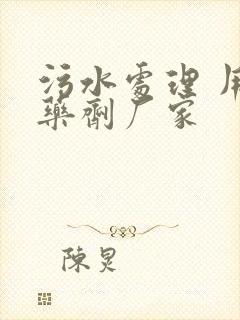 污水處理 用
藥劑厂家
陳炅